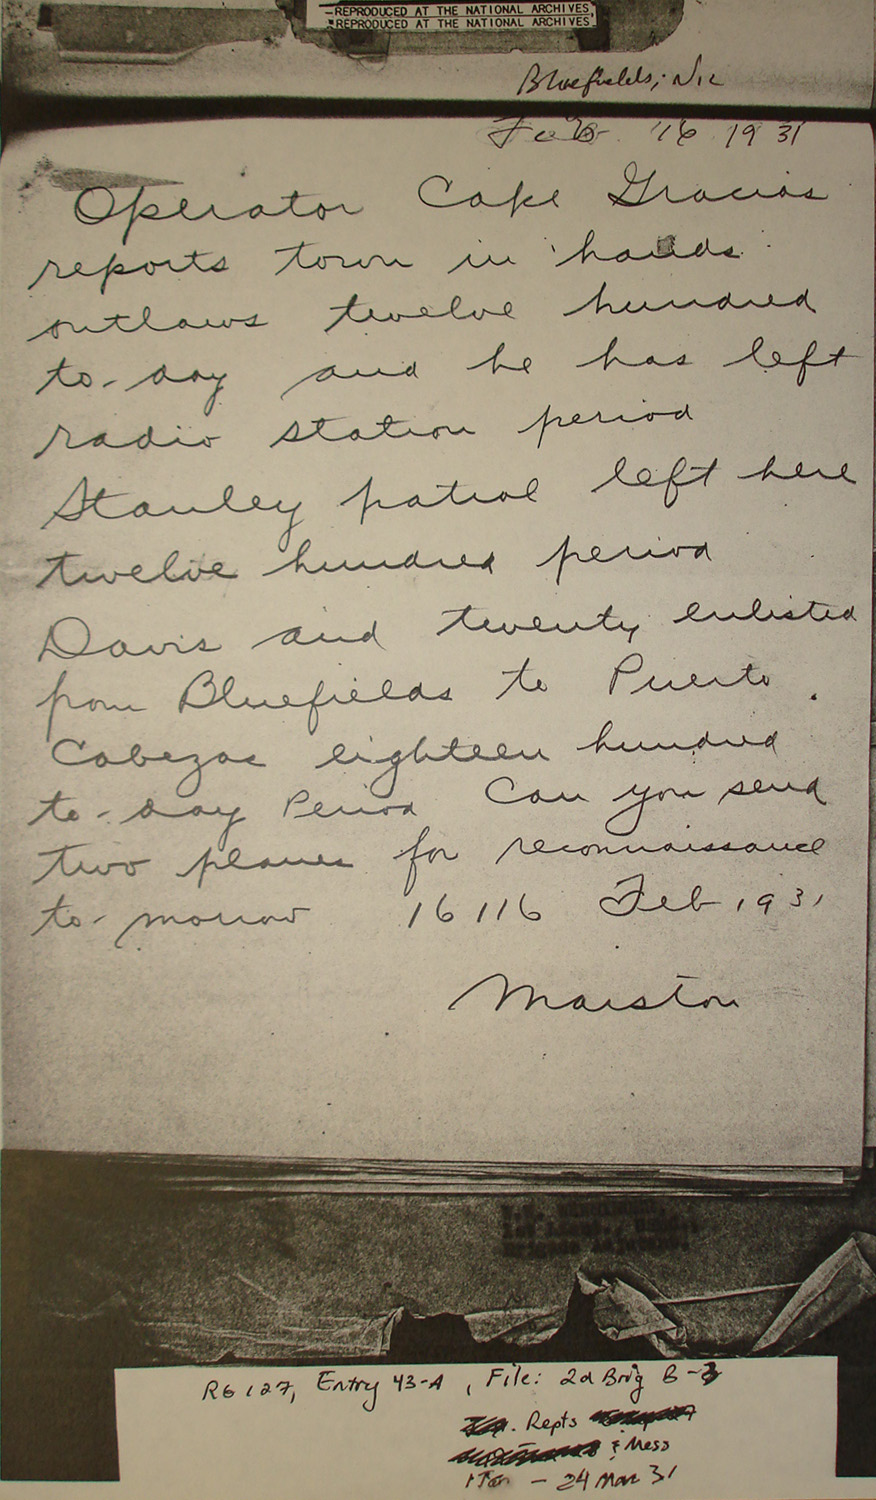 REPRODUCED AT THE NATIONAL ARCHIVES
REPRODUCED AT THE NATIONAL ARCHIVES
Bluefields, Nic
Feb 16 1931
Operator Cape Gracias
reports town in hands
outlaws twelve hundred
to-day and he has left
radio station period
Stanley patrol left here
twelve hundred period
Davis and twenty enlisted
from Bluefields to Puerto
Cabezas eighteen hundred
to-day Period Can you send
two planes for reconnaissance
to-morrow 16116 Feb 1931
Marston
RG 127, Entry 43-A, File: 2d Brig B-3
Repts
& Mess
1 Jan - 24 Mar 31